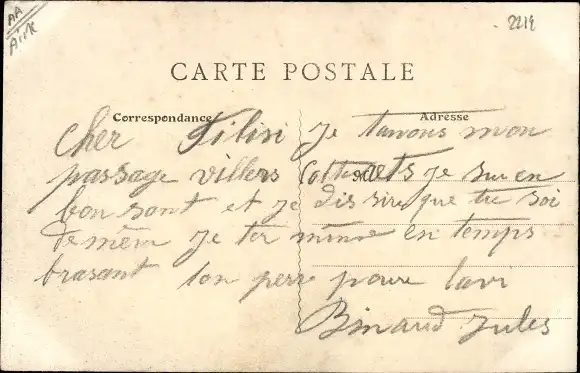 AA
Aisk
2219
CARTE POSTALE
Correspondance
Adresse
Cher Filisi Je tavons mon
passage villers Cotterets Je sui en
bon sant et je dis sire que tu soi
de mêm Je ter mine en temps
brasant ton perre pour lavi
Binaud Jules